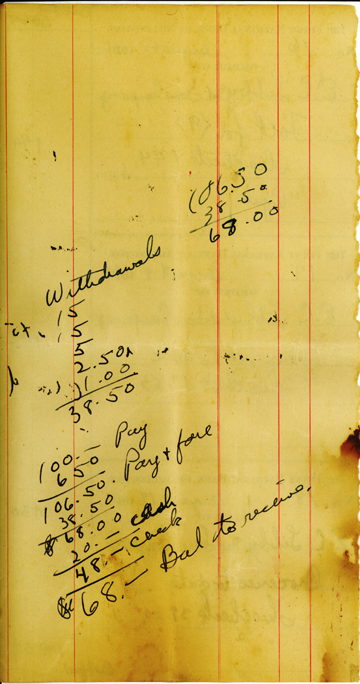 106.50
38.50
68.00
Withdrawals
15
15
5
2.50
1.00
38.50
100.- Pay
6.50
106.50. Pay + fare
38.50
$ 68.00
20.- cash
48.- check
$ 68.- Bal to receive.